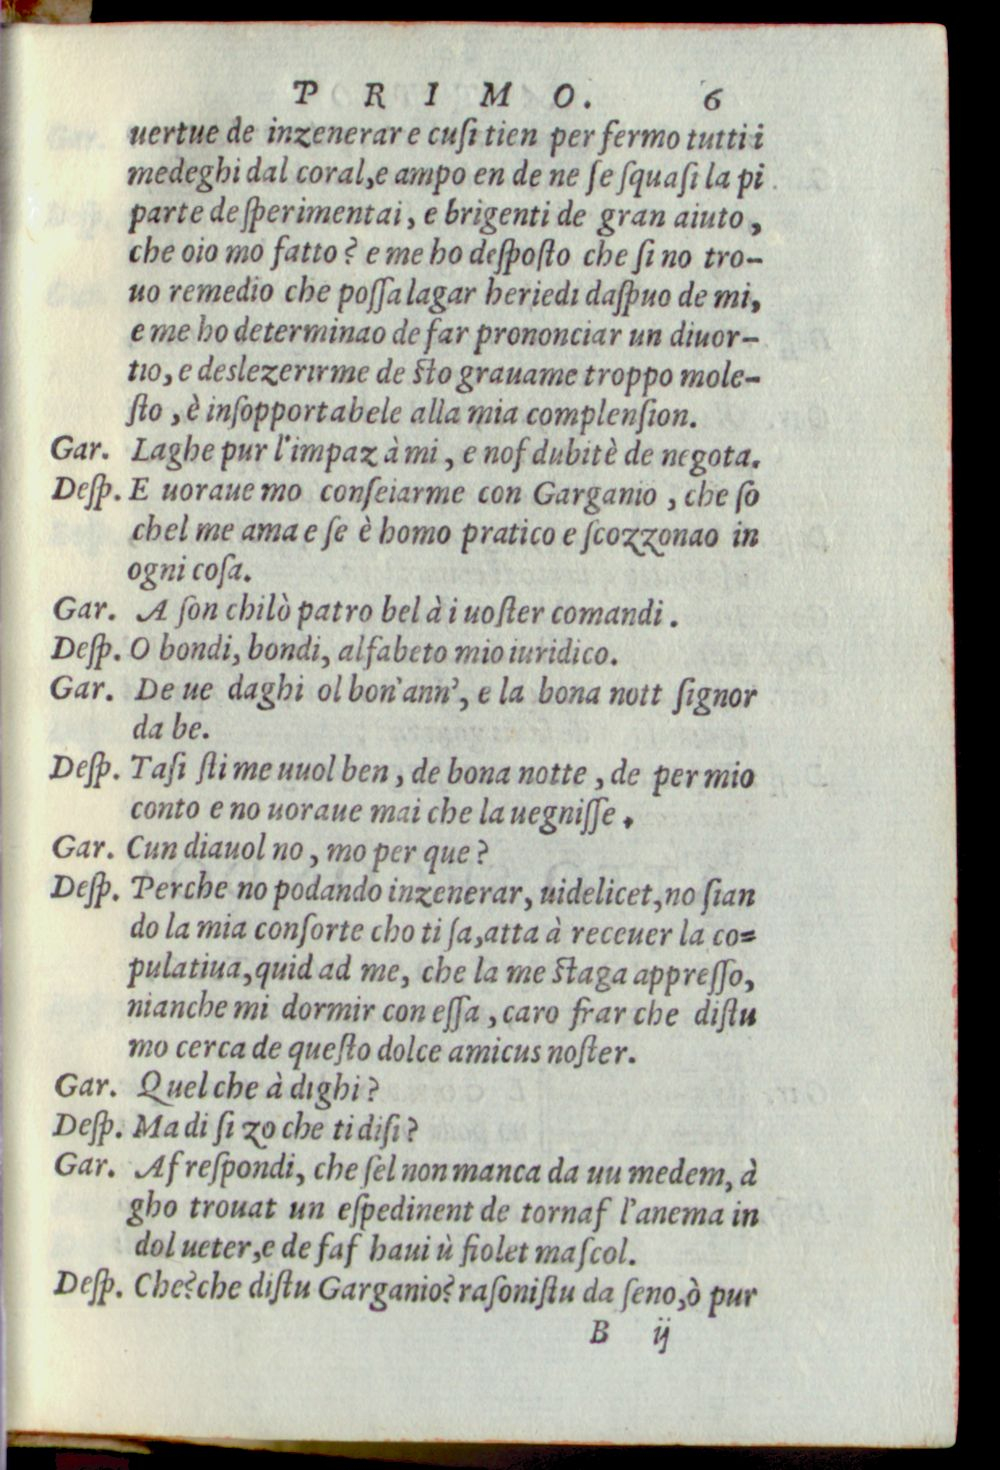 PRIMO. 6
uertue de inzenerar e cuſi tien per fermo tutti i
medeghi dal coral, e ampo en de ne ſe ſquaſi la pi
parte deſperimentai, e brigenti de gran aiuto,
che oio mo fatto? e me ho deſpoſto che ſi no tro-
uo remedio che poſſa lagar heriedi daſpuo de mi,
e me ho determinao de far prononciar un diuor-
tio, e deslezerirme de ſto grauame troppo mole-
ſto, è inſopportabele alla mia complenſion.
Gar. Laghe pur l'impaz à mi, e nof dubitè de negota.
Deſp. E uoraue mo conſeiarme con Garganio, che ſo
chel me ama e ſe è homo pratico e ſcozzonao in
ogni coſa.
Gar. A ſon chilò patro bel à i uoſter comandi.
Deſp. O bondi, bondi, alfabeto mio iuridico.
Gar. De ue daghi ol bon'ann', e la bona nott ſignor
da be.
Deſp. Taſi ſti me uuol ben, de bona notte, de per mio
conto e no uoraue mai che la uegniſſe.
Gar. Cun diauol no, mo per que?
Deſp. Perche no podando inzenerar, uidelicet, no ſian
do la mia conſorte cho ti ſa, atta à receuer la co=
pulatiua, quid ad me, che la me ſtaga appreſſo,
nianche mi dormir con eſſa, caro frar che diſtu
mo cerca de queſto dolce amicus noſter.
Gar. Quel che à dighi?
Deſp. Ma di ſi zo che ti diſi?
Gar. Af reſpondi, che ſel non manca da uu medem, à
gho trouat un eſpedinent de tornaf l'anema in
dol ueter, e de faf haui ù fiolet maſcol.
Deſp. Che? che diſtu Garganio? raſoniſtu da ſeno, ò pur
B ij